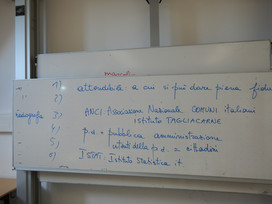 1) attendibile: a cui si può dare piena fidu
2)
ANCI: Associazione Nazionale COMUNI italiani
3)
istituto TAGLIACARNE
4)
p.a. = pubblica amministrazione
5) utenti della p.a. = cittadini
6) ISTAT: Istituto Statistica it.